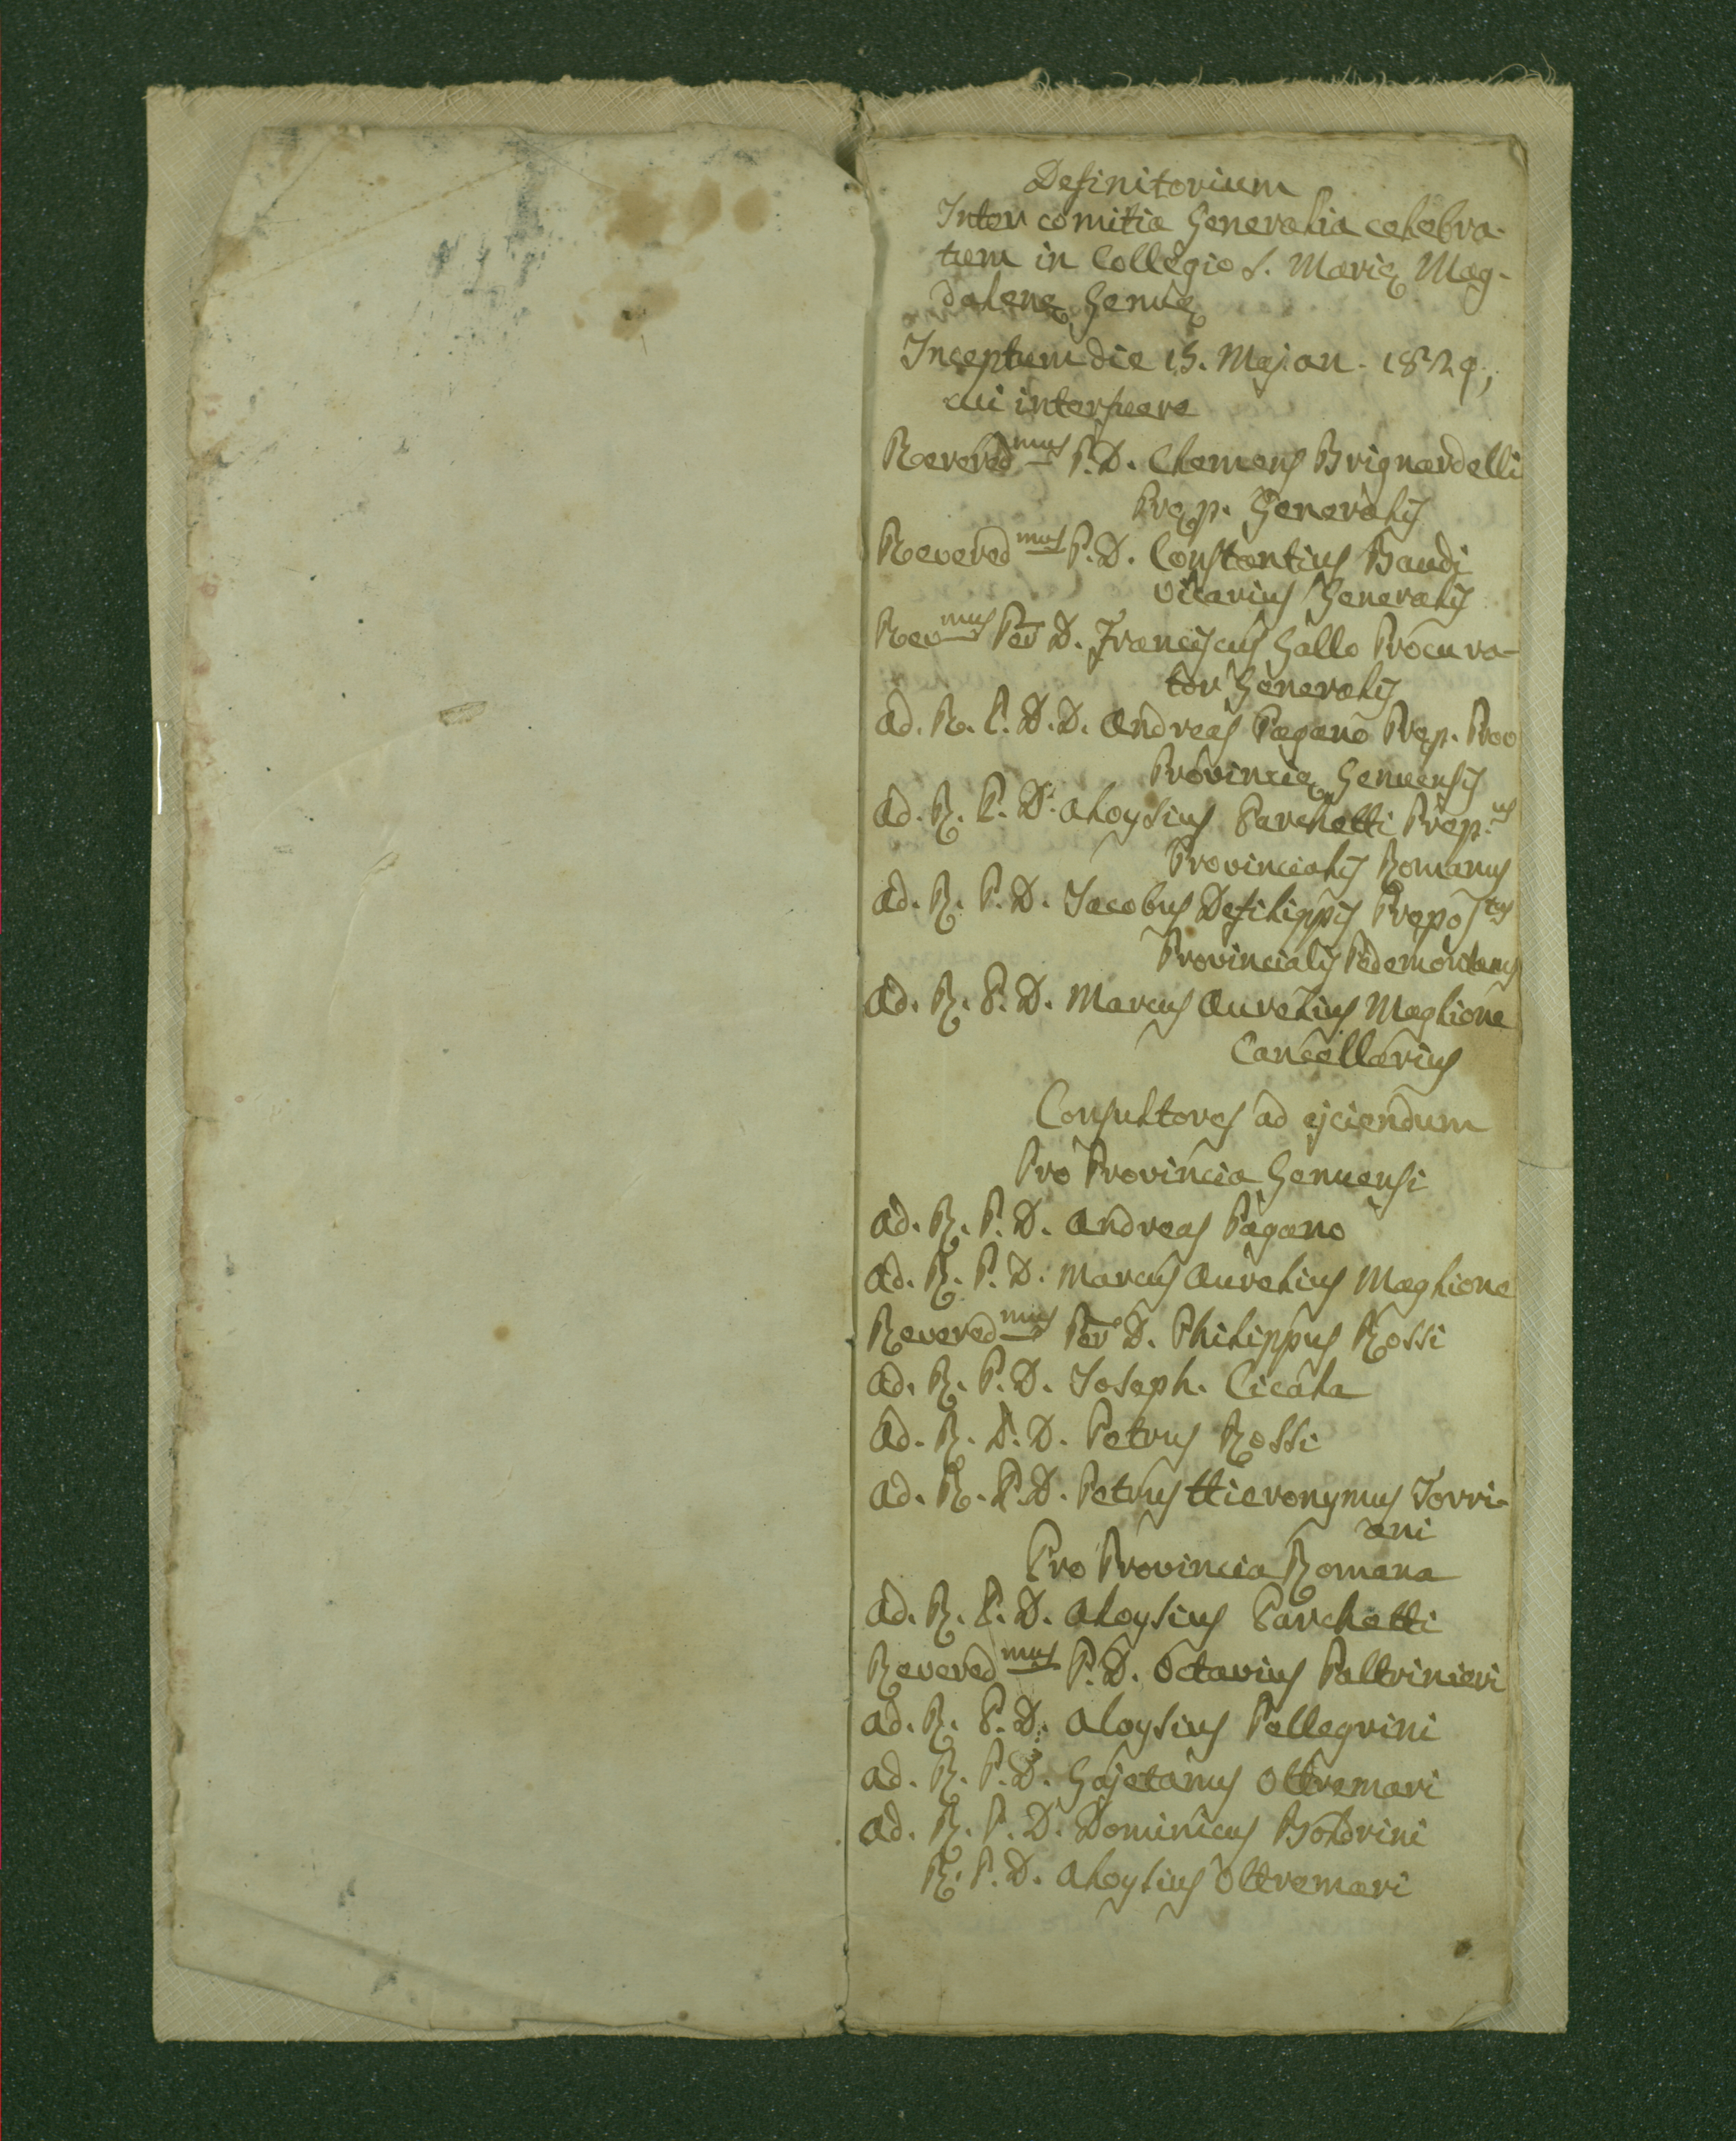 Definitorium
Inter comitia Generalia celebra-
tum in Collegio S. Marię Mag-
dalenę Genuę
Inceptum die 15. Maj. an. 1829,
cui interfuere
Revered.mus P. D. Clemens Brignardelli
Pręp. Generalis
Revered.mus P. D. Constantius Baudi
Vicarius Generalis
Rev.mus Per D. Franciscus Gallo Procura-
tor Generalis
Ad. R. P. D. D. Andreas Pagano Pręp. Proo
Provincię Genuensis
Ad. R. P. D. Aloysius Parchetti Prep.us
Provincialis Romanus
Ad. R. P. D. Jacobus Defilippis Prepostus
Provincialis Pedemontanus
Ad. R. P. D. Marcus Aurelius Maglione
Cancellarius
Consultores ad ejiciendum
Pro Provincia Genuensi
Ad. R. P. D. Andreas Pagano
Ad. R. P. D. Marcus Aurelius Maglione
Revered.mus Per D. Philippus Rossi
Ad. R. P. D. Joseph. Cicala
Ad. R. P. D. Petrus Rossi
Ad. R. P. D. Petrus Hieronymus Torri-
ani
Pro Provincia Romana
Ad. R. P. D. Aloysius Parchetti
Revered.mus P. D. Octavius Paltrinieri
Ad. R. P. D. Aloysius Pellegrini
Ad. R. P. D. Gajetanus Oltremari
Ad. R. P. D. Dominicus Boldrini
R. P. D. Aloysius Oltremari